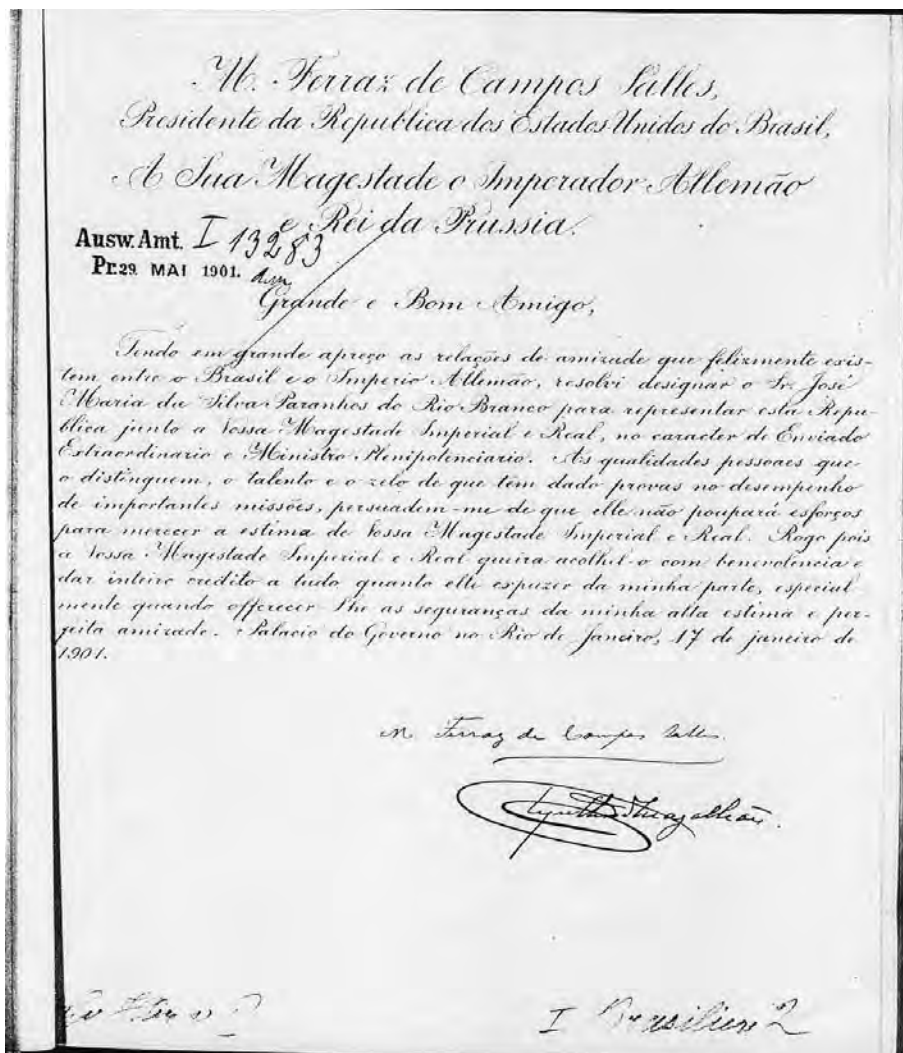 M. Ferraz de Campos Salles,
Presidente da Republica dos Estados Unidos do Brasil,
A Sua Magestade o Imperador Allemão
e Rei da Prussia.
Ausw. Amt. I 13283
Pr. 29. MAI 1901.
Grande e Bom Amigo,
Tendo em grande apreço as relações de amizade que felizmente exis-
tem entre o Brasil e o Imperio Allemão, resolvi designar o Sr. José
Maria da Silva Paranhos do Rio Branco para representar esta Repu-
blica junto a Vossa Magestade Imperial e Real, no caracter de Enviado
Extraordinario e Ministro Plenipotenciario. As qualidades pessoaes que
o distinguem, o talento e o zelo de que tem dado provas no desempenho
de importantes missões, persuadem-me de que elle não poupará esforços
para merecer a estima de Vossa Magestade Imperial e Real. Rogo pois
a Vossa Magestade Imperial e Real queira acolhel-o com benevolencia e
dar inteiro credito a tudo quanto elle expuzer da minha parte, especial-
mente quando offerecer Lhe as seguranças da minha alta estima e per-
feita amizade. Palacio do Governo no Rio de Janeiro, 17 de janeiro de
1901.
M. Ferraz de Campos Salles
Olyntho de Magalhães.
I Brasilien 2